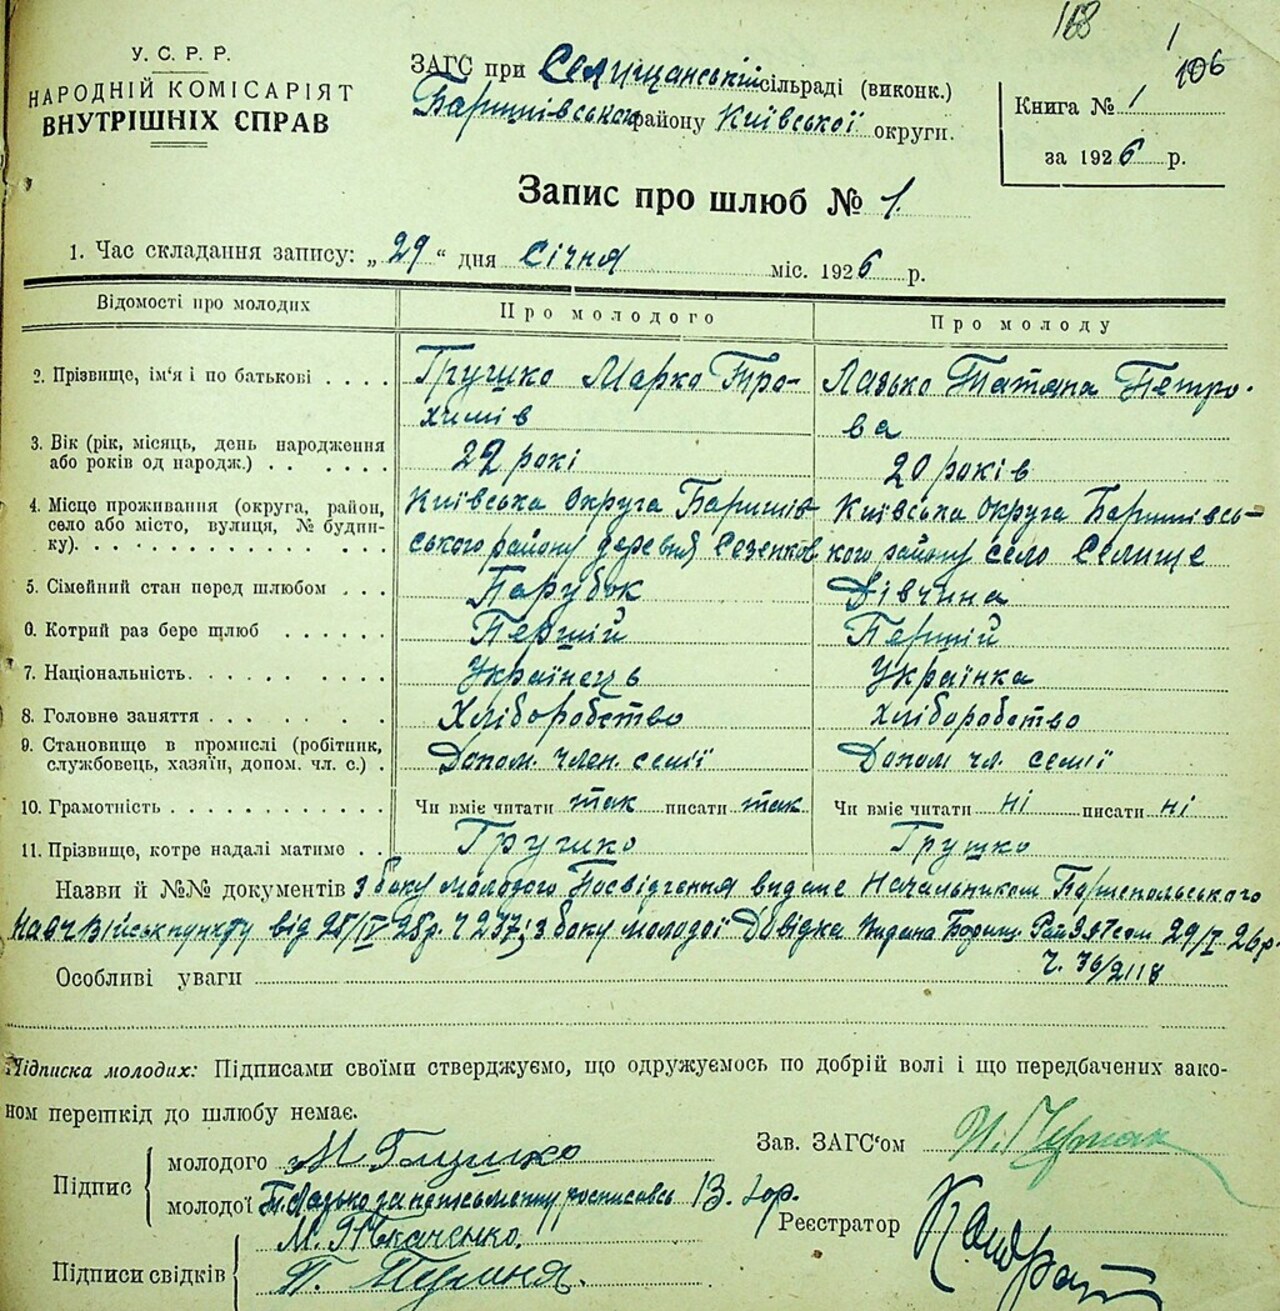 168
1
106
У. С. Р. Р.
НАРОДНІЙ КОМІСАРІЯТ
ВНУТРІШНІХ СПРАВ
ЗАГС при Селищанській сільраді (виконк.)
Баришівського району Київської округи.
Книга № 1
за 1926 р.
Запис про шлюб № 1.
1. Час складання запису: „29“ дня Січня міс. 1926 р.
Відомості про молодих
Про молодого
Про молоду
2. Прізвище, ім'я і по батькові
Грушко Марко Тро-
химів
Лазько Татяна Петро-
ва
3. Вік (рік, місяць, день народження
або років од народж.)
22 рокі
20 років
4. Місце проживання (округа, район,
село або місто, вулиця, № будин-
ку)
Київська Округа Баришів-
ського району деревня Сезенков
Київська Округа Баришівсь-
кого району село Селище
5. Сімейний стан перед шлюбом
Парубок
Дівчина
6. Котрий раз бере шлюб
Першій
Першій
7. Національність
Українець
Українка
8. Головне заняття
Хліборобство
Хліборобство
9. Становище в промислі (робітник,
службовець, хазяїн, допом. чл. с.)
Допом. член. семії
Допом чл. семії
10. Грамотність
Чи вміє читати так писати так
Чи вміє читати ні писати ні
11. Прізвище, котре надалі матиме
Грушко
Грушко
Назви й №№ документів З боку молодого Посвідчення видане Начальником Бориспольського
Навч Військпункту від 25/IV 25р. Ч 237; з боку молодої Довідка Видана Бориш. 29/I 26р.
Ч. 36/2118
Особливі уваги
Підписка молодих: Підписами своїми стверджуємо, що одружуємось по добрій волі і що передбачених зако-
ном перешкід до шлюбу немає.
Підпис
молодого М Грушко
молодої Т. Лазько за неписьменну росписавсь
Підписи свідків
М. Ткаченко.
П.
Зав. ЗАГС'ом
Реєстратор